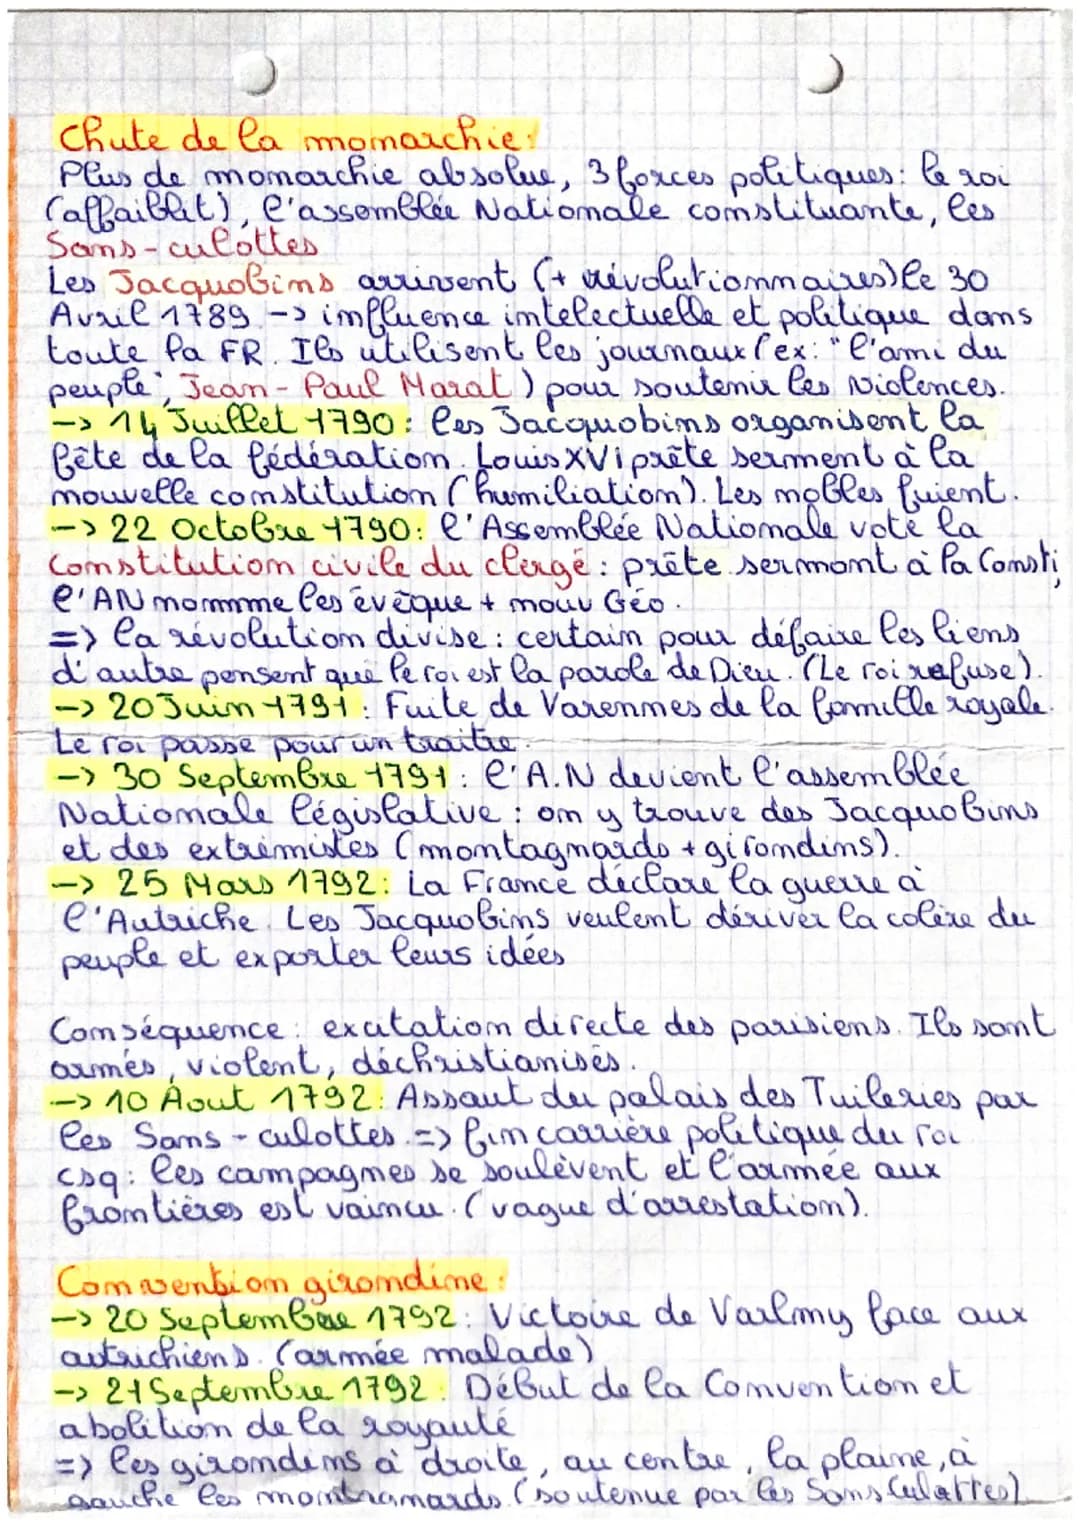 Chute de la monarchie:
Plus de monarchie absolue, 3 forces politiques: le roi
(affaiblit), l'assemblée Nationale constituante, les
Sans-culottes
Les Jacquobins arrivent (+ révolutionnaires) le 30
Avril 1789 -> influence intelectuelle et politique dans
toute la FR. Ils utilisent les journaux (ex: "l'ami du
peuple", Jean-Paul Marat) pour soutenir les violences.
-> 14 Juillet 1790: les Jacquobins organisent la
fête de la fédération. Louis XVI prête serment à la
nouvelle constitution (humiliation). Les nobles fuient.
-> 22 Octobre 1790: l'Assemblée Nationale vote la
Constitution civile du clergé: prête sermont à la Consti,
l'AN nommme les évêque + nouv Géo.
=> la révolution divise: certain pour défaire les liens
d'autre pensent que le roi est la parole de Dieu. (Le roi refuse).
-> 20 Juin 1791: Fuite de Varennes de la famille royale.
Le roi passe pour un traitre.
-> 30 Septembre 1791: l'A.N devient l'assemblée
Nationale législative: on y trouve des Jacquobins
et des extrémistes (montagnards + girondins).
-> 25 Mars 1792: La France déclare la guerre à
l'Autriche. Les Jacquobins veulent dériver la colère du
peuple et exporter leurs idées
Conséquence: exitation directe des parisiens. Ils sont
armés, violent, déchristianisés.
-> 10 Août 1792: Assaut du palais des Tuileries par
les Sans-culottes. => fin carrière politique du roi
csq: les campagnes se soulèvent et l'armée aux
frontières est vaincu. (vague d'arrestation).
Convention girondine:
-> 20 Septembre 1792: Victoire de Varlmy face aux
autrichiens. (armée malade)
-> 21 Septembre 1792: Début de la Convention et
abolition de la royauté
=> les girondins à droite, au centre, la plaine, à
gauche les montnamards. (soutenue par les Sans Culottes)